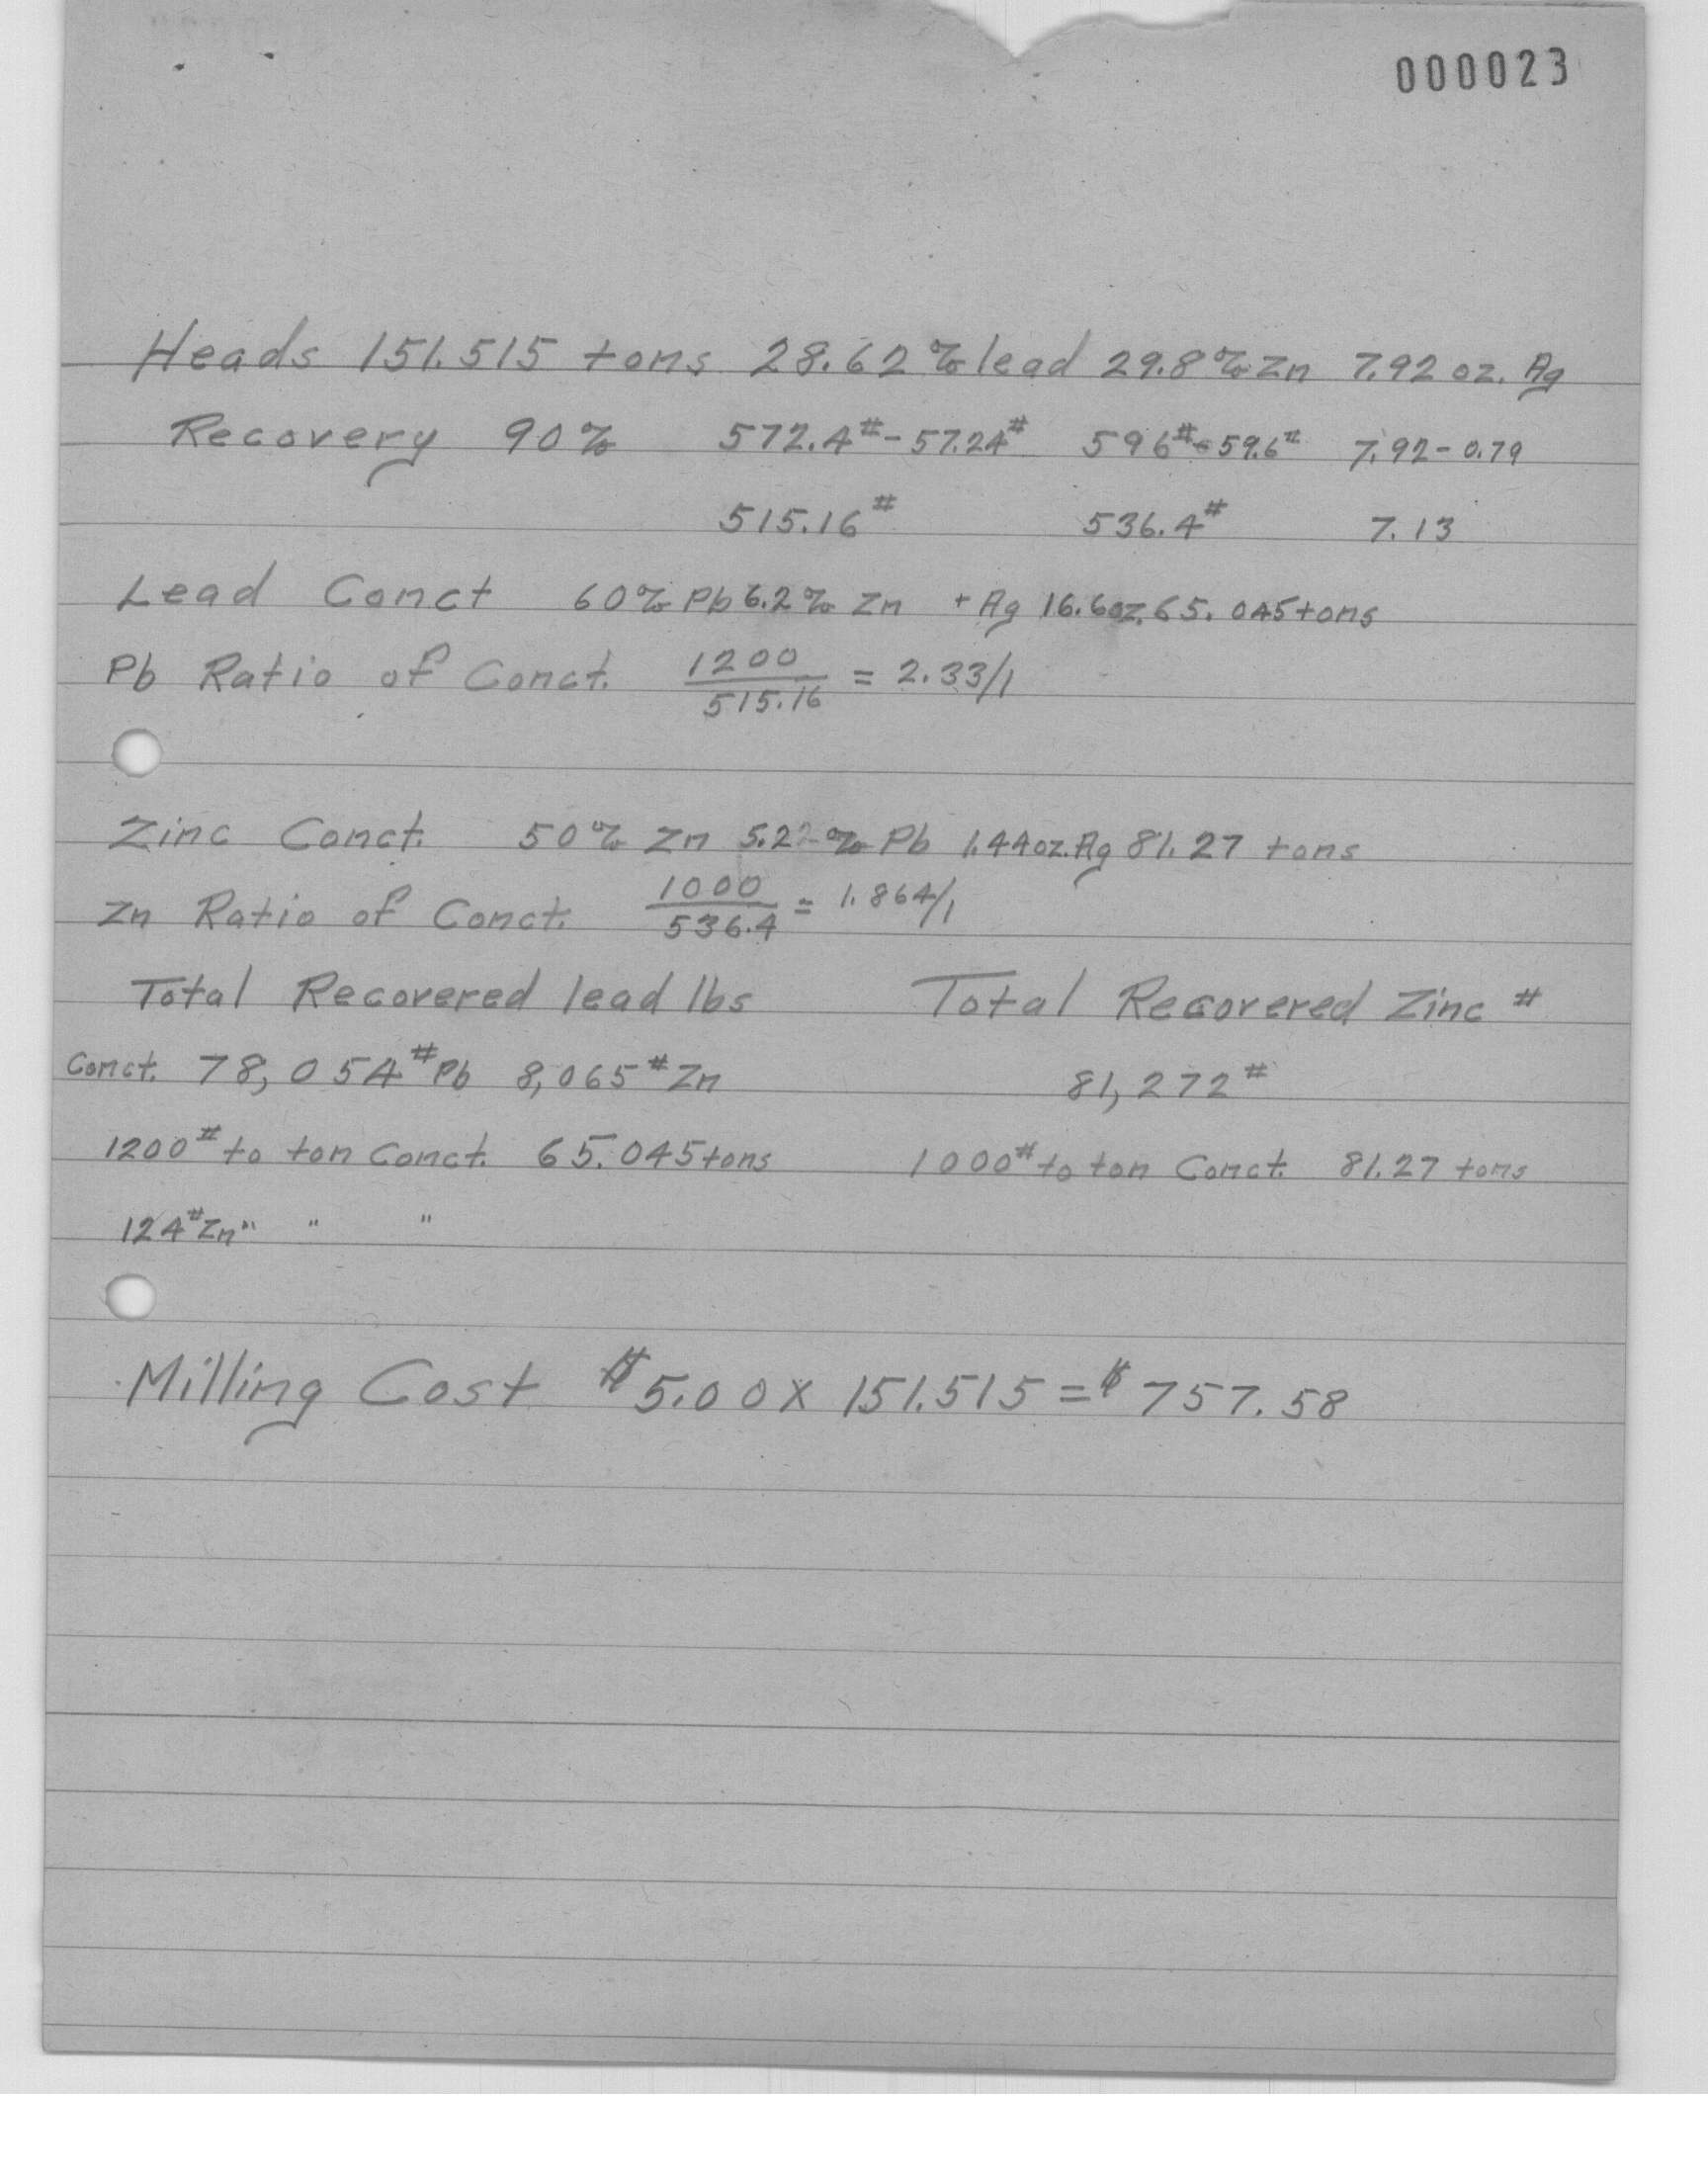 000023
Heads 151.515 tons 28.62% lead 29.8% Zn 7.92 oz. Ag
Recovery 90% 572.4# - 57.24# 596# - 59.6# 7.92 - 0.79
515.16# 536.4# 7.13
Lead Conct 60% Pb 6.2% Zn + Ag 16.6oz. 65.045 tons
Pb Ratio of Conct. 1200/515.16 = 2.33/1
Zinc Conct. 50% Zn 5.22% Pb 1.44oz. Ag 81.27 tons
Zn Ratio of Conct. 1000/536.4 = 1.864/1
Total Recovered lead lbs Total Recovered Zinc #
Conct. 78,054# Pb 8,065# Zn 81,272#
1200# to ton Conct. 65.045 tons 1000# to ton Conct. 81.27 tons
124# Zn " " "
Milling Cost $5.00 x 151.515 = $757.58